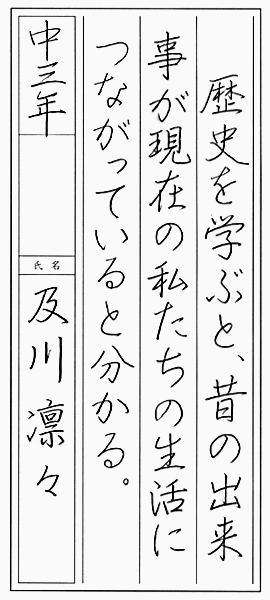 歴史を学ぶと、昔の出来
事が現在の私たちの生活に
つながっていると分かる。
中三年
氏名
及川凛々